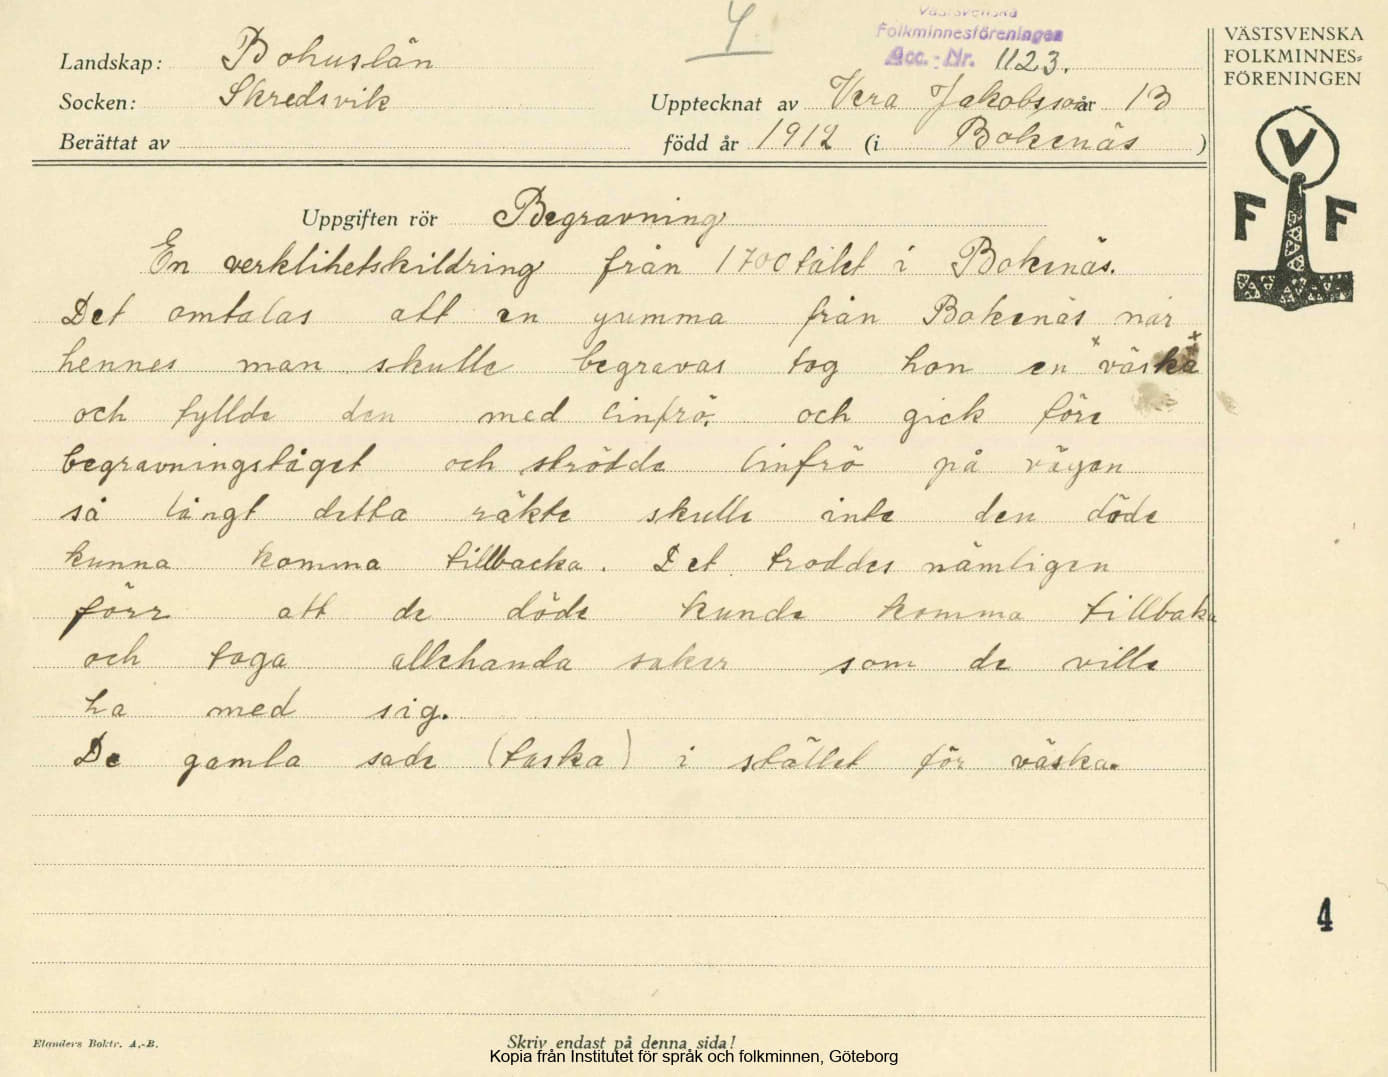 4
Västsvenska
Folkminnesföreningen
Acc. - Nr. 1123.
VÄSTSVENSKA
FOLKMINNES=
FÖRENINGEN
Landskap: Bohuslän
Socken: Skredsvik
Upptecknat av Vera Jakobsson år 13
Berättat av
född år 1912 (i Bokenäs )
V
F F
Uppgiften rör Begravning
En verklihetskildring från 1700talet i Bokenäs.
Det omtalas att en gumma från Bokenäs när
hennes man skulle begravas tog hon en x väska x
och fyllde den med linfrö, och gick före
begravningståget och strödde linfrö på vägen
så långt detta räkte skulle inte den döde
kunna komma tillbacka. Det troddes nämligen
förr att de döde kunde komma tillbaka
och taga allehanda saker som de ville
ha med sig.
De gamla sade (taska) i stället för väska.
4
Elanders Boktr. A.-B.
Skriv endast på denna sida!
Kopia från Institutet för språk och folkminnen, Göteborg